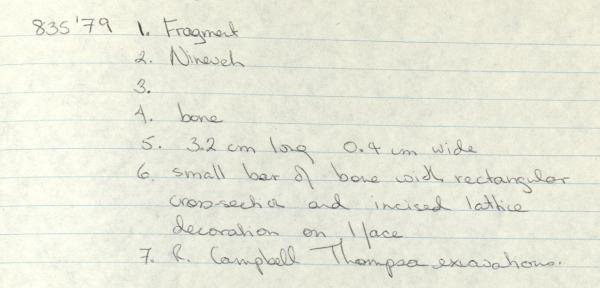 835'79 1. Fragment
2. Nineveh
3.
4. bone
5. 3.2 cm long 0.4 cm wide
6. small bar of bone with rectangular
cross-section and incised lattice
decoration on 1 face
7. R. Campbell Thompson excavations.